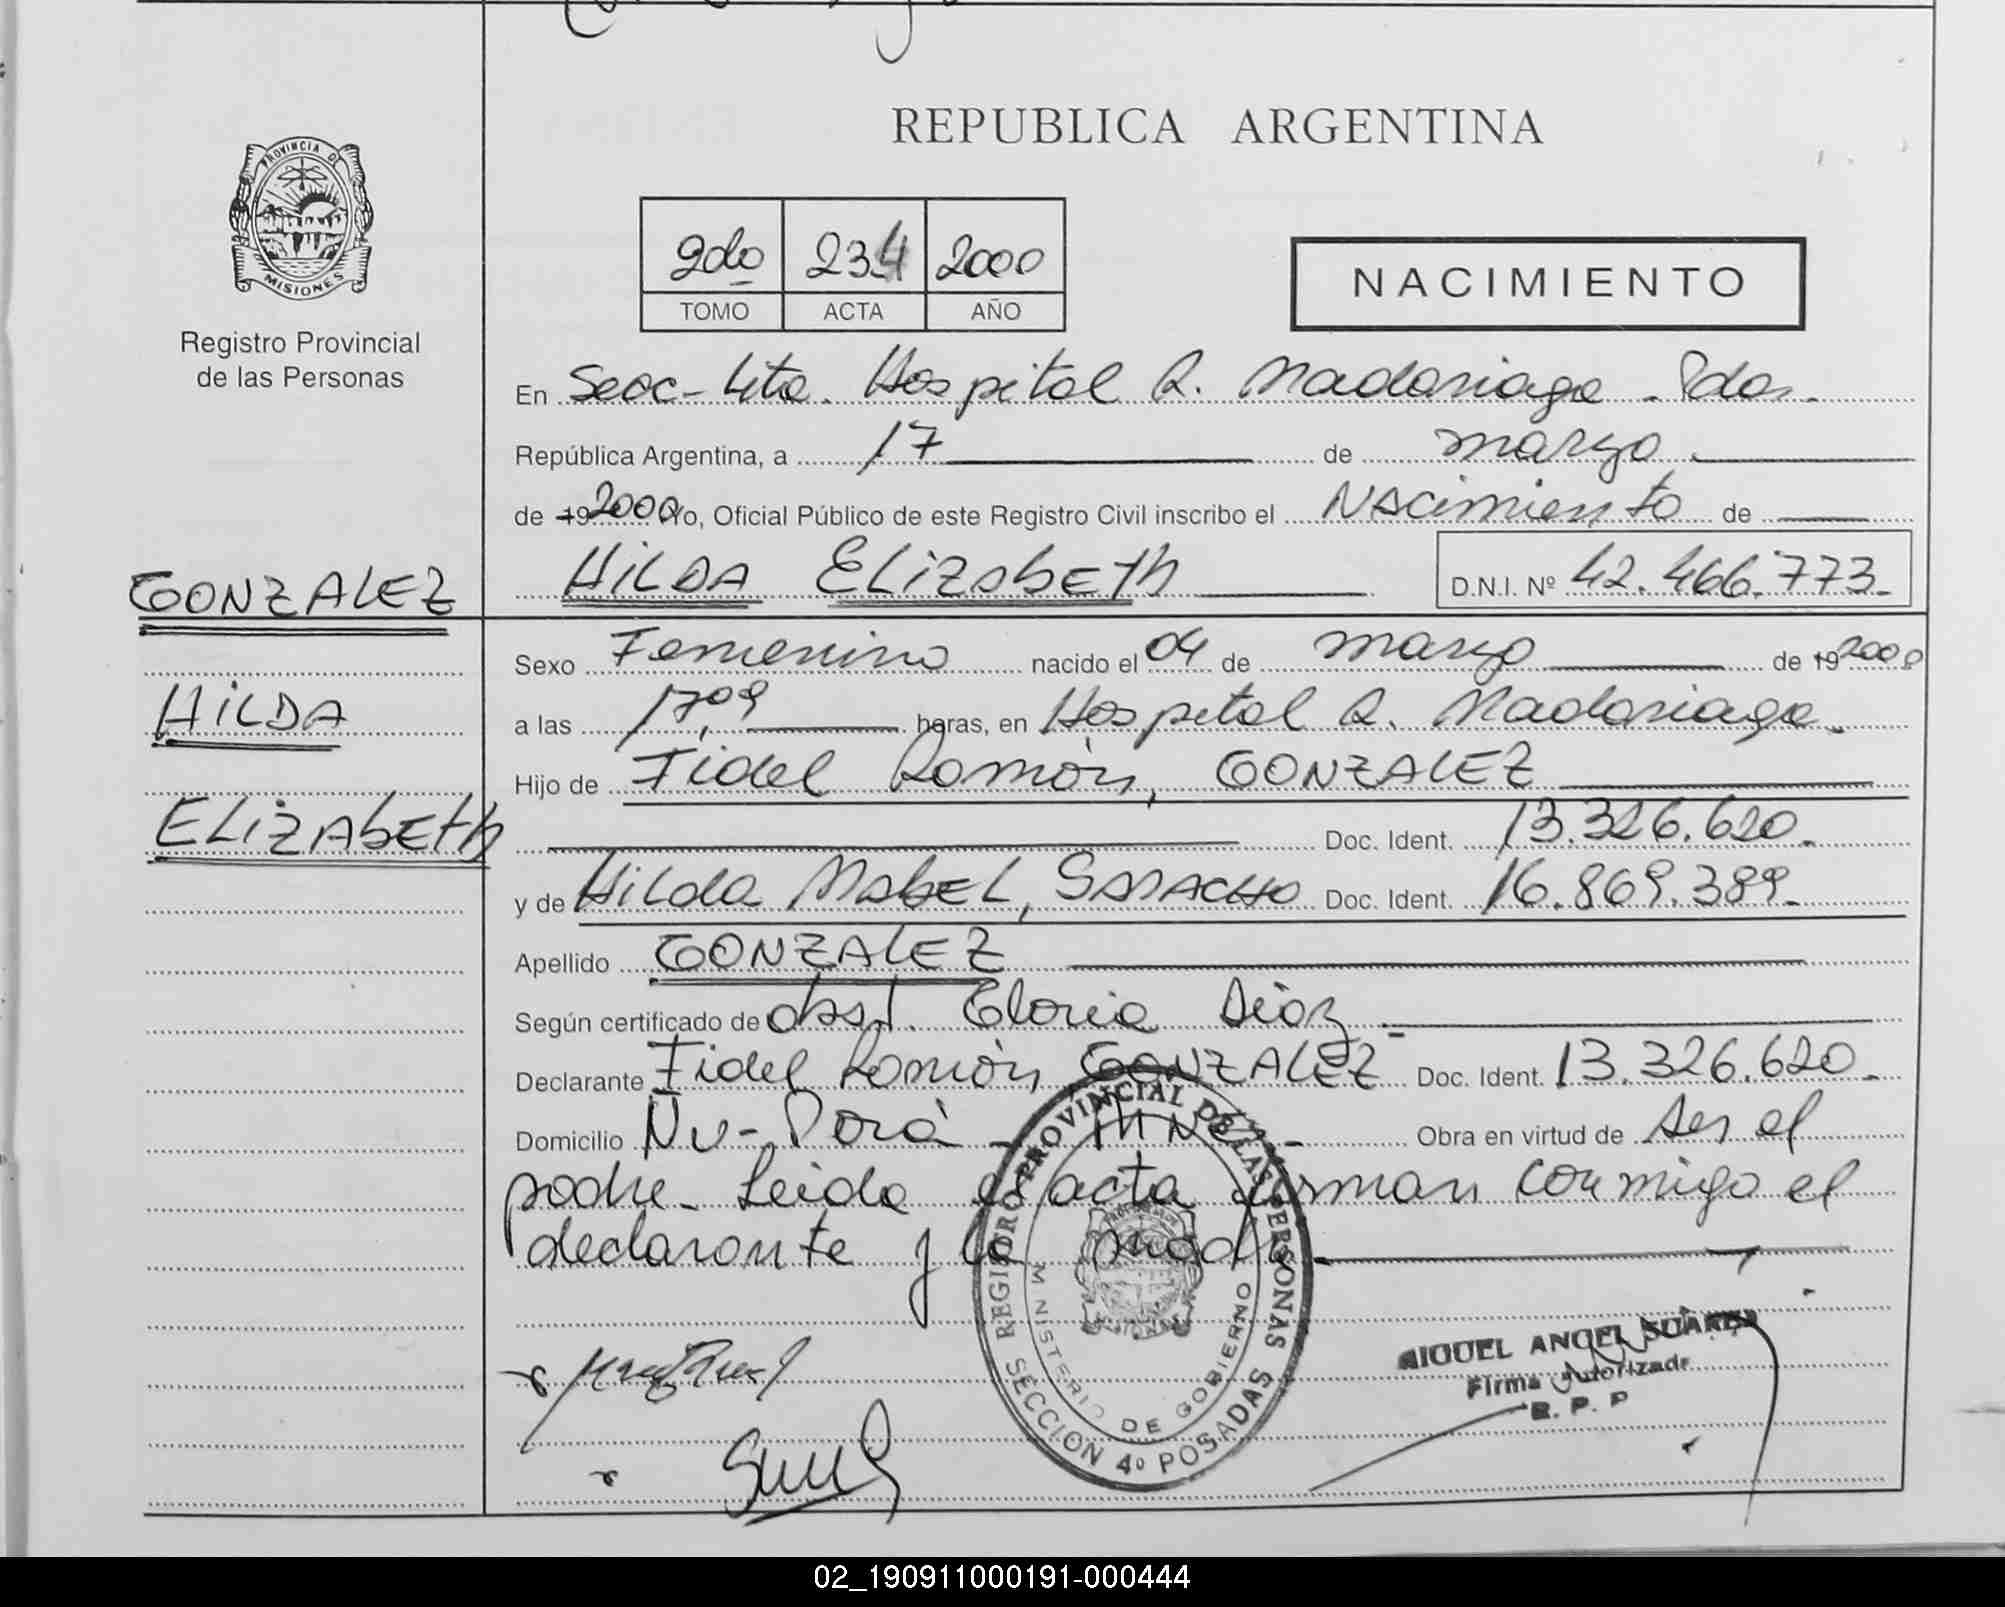 REPUBLICA ARGENTINA
PROVINCIA DE
MISIONES
Registro Provincial
de las Personas
2do 234 2000
TOMO ACTA AÑO
NACIMIENTO
En Secc-4ta. Hospital R. Madariaga - Pdas.
República Argentina, a 17 de marzo
de 19 2000 Yo, Oficial Público de este Registro Civil inscribo el NAcimiento de
HiLDA ELizAbETh D.N.I. Nº 42.466.773.-
GONZALEZ
HiLDA
ELizAbETh
Sexo Femenino nacido el 04 de marzo de 19 2000
a las 17,09 horas, en Hospital R. Madariaga.
Hijo de Fidel Ramón, GONZALEZ
Doc. Ident. 13.326.620.-
y de HiLda MAbEL, SARACHO Doc. Ident. 16.869.389.-
Apellido GONZALEZ
Según certificado de obst. Gloria Diaz.-
Declarante Fidel Ramón GONZALEZ Doc. Ident. 13.326.620.-
Domicilio Ñu-Porá - Mnes.- Obra en virtud de ser el
padre. Leida el acta firman conmigo el
declarante y la madre.-
REGISTRO PROVINCIAL DE LAS PERSONAS
MINISTERIO DE GOBIERNO
SECCION 4º POSADAS
MIGUEL ANGEL SUAREZ
Firma Autorizada
R. P. P
02_190911000191-000444